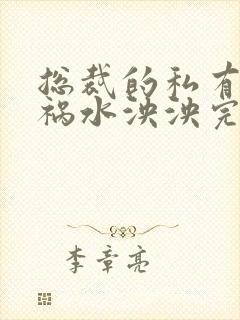 总裁的私有
祸水泱泱完
李章亮